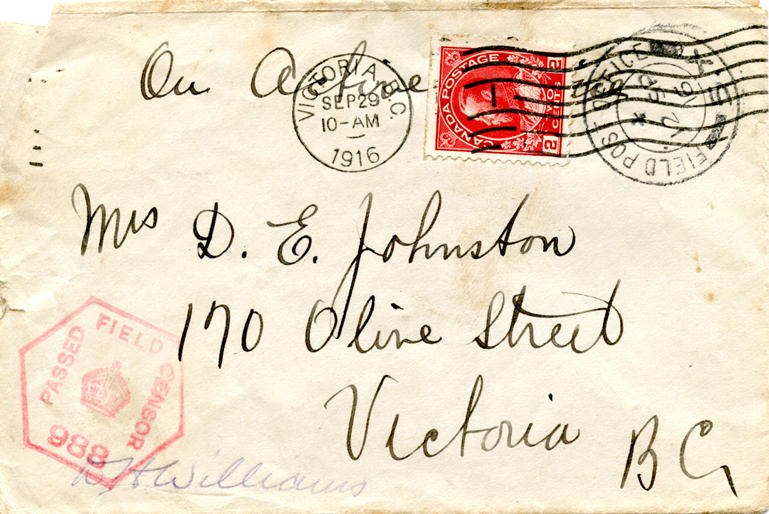 On Active
VICTORIA, B.C.
SEP 29
10-AM
1916
CANADA POSTAGE
2 CENTS 2
FIELD POST OFFICE
Mrs D. E. Johnston
170 Olive Street
Victoria
B C,
PASSED FIELD CENSOR
988
Williams